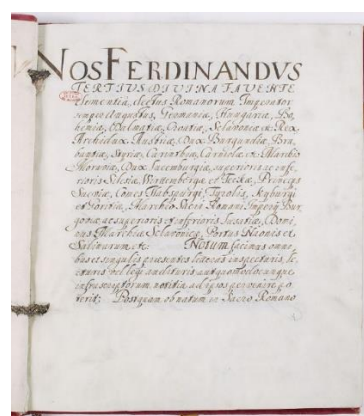 NOS FERDINANDVS
TERTIVS DIVINA FAVENTE
clementiâ, electus Romanorum Imperator
semper Augustus, Germaniæ, Hungariæ, Bo
hemiæ, Dalmatiæ, Croatiæ, Sclavoniæ &c Rex,
Archidux Austriæ, Dux Burgundiæ, Bra
bantiæ, Styriæ, Carinthiæ, Carniolæ &c Marchio
Moraviæ, Dux Lucemburgiæ, ac superioris ac infe
rioris Silesiæ, Wirtembergæ et Teckæ, Princeps
Sueviæ, Comes Habspurgi, Tyrolis, Kyburgi
et Goritiæ, Marchio Sacri Romani Imperij Bur
goviæ ac superioris et inferioris Lusatiæ, Domi
nus Marchiæ Sclavonicæ, Portus Naonis et
Salinarum, etc. NOTUM facimus omni
bus et singulis præsentes literas inspecturis, le
cturis vel legi audituris aut quomodocunque
infrascriptorum notitia ad ipsos pervenire po
terit; Postquam ob natum in Sacro Romano